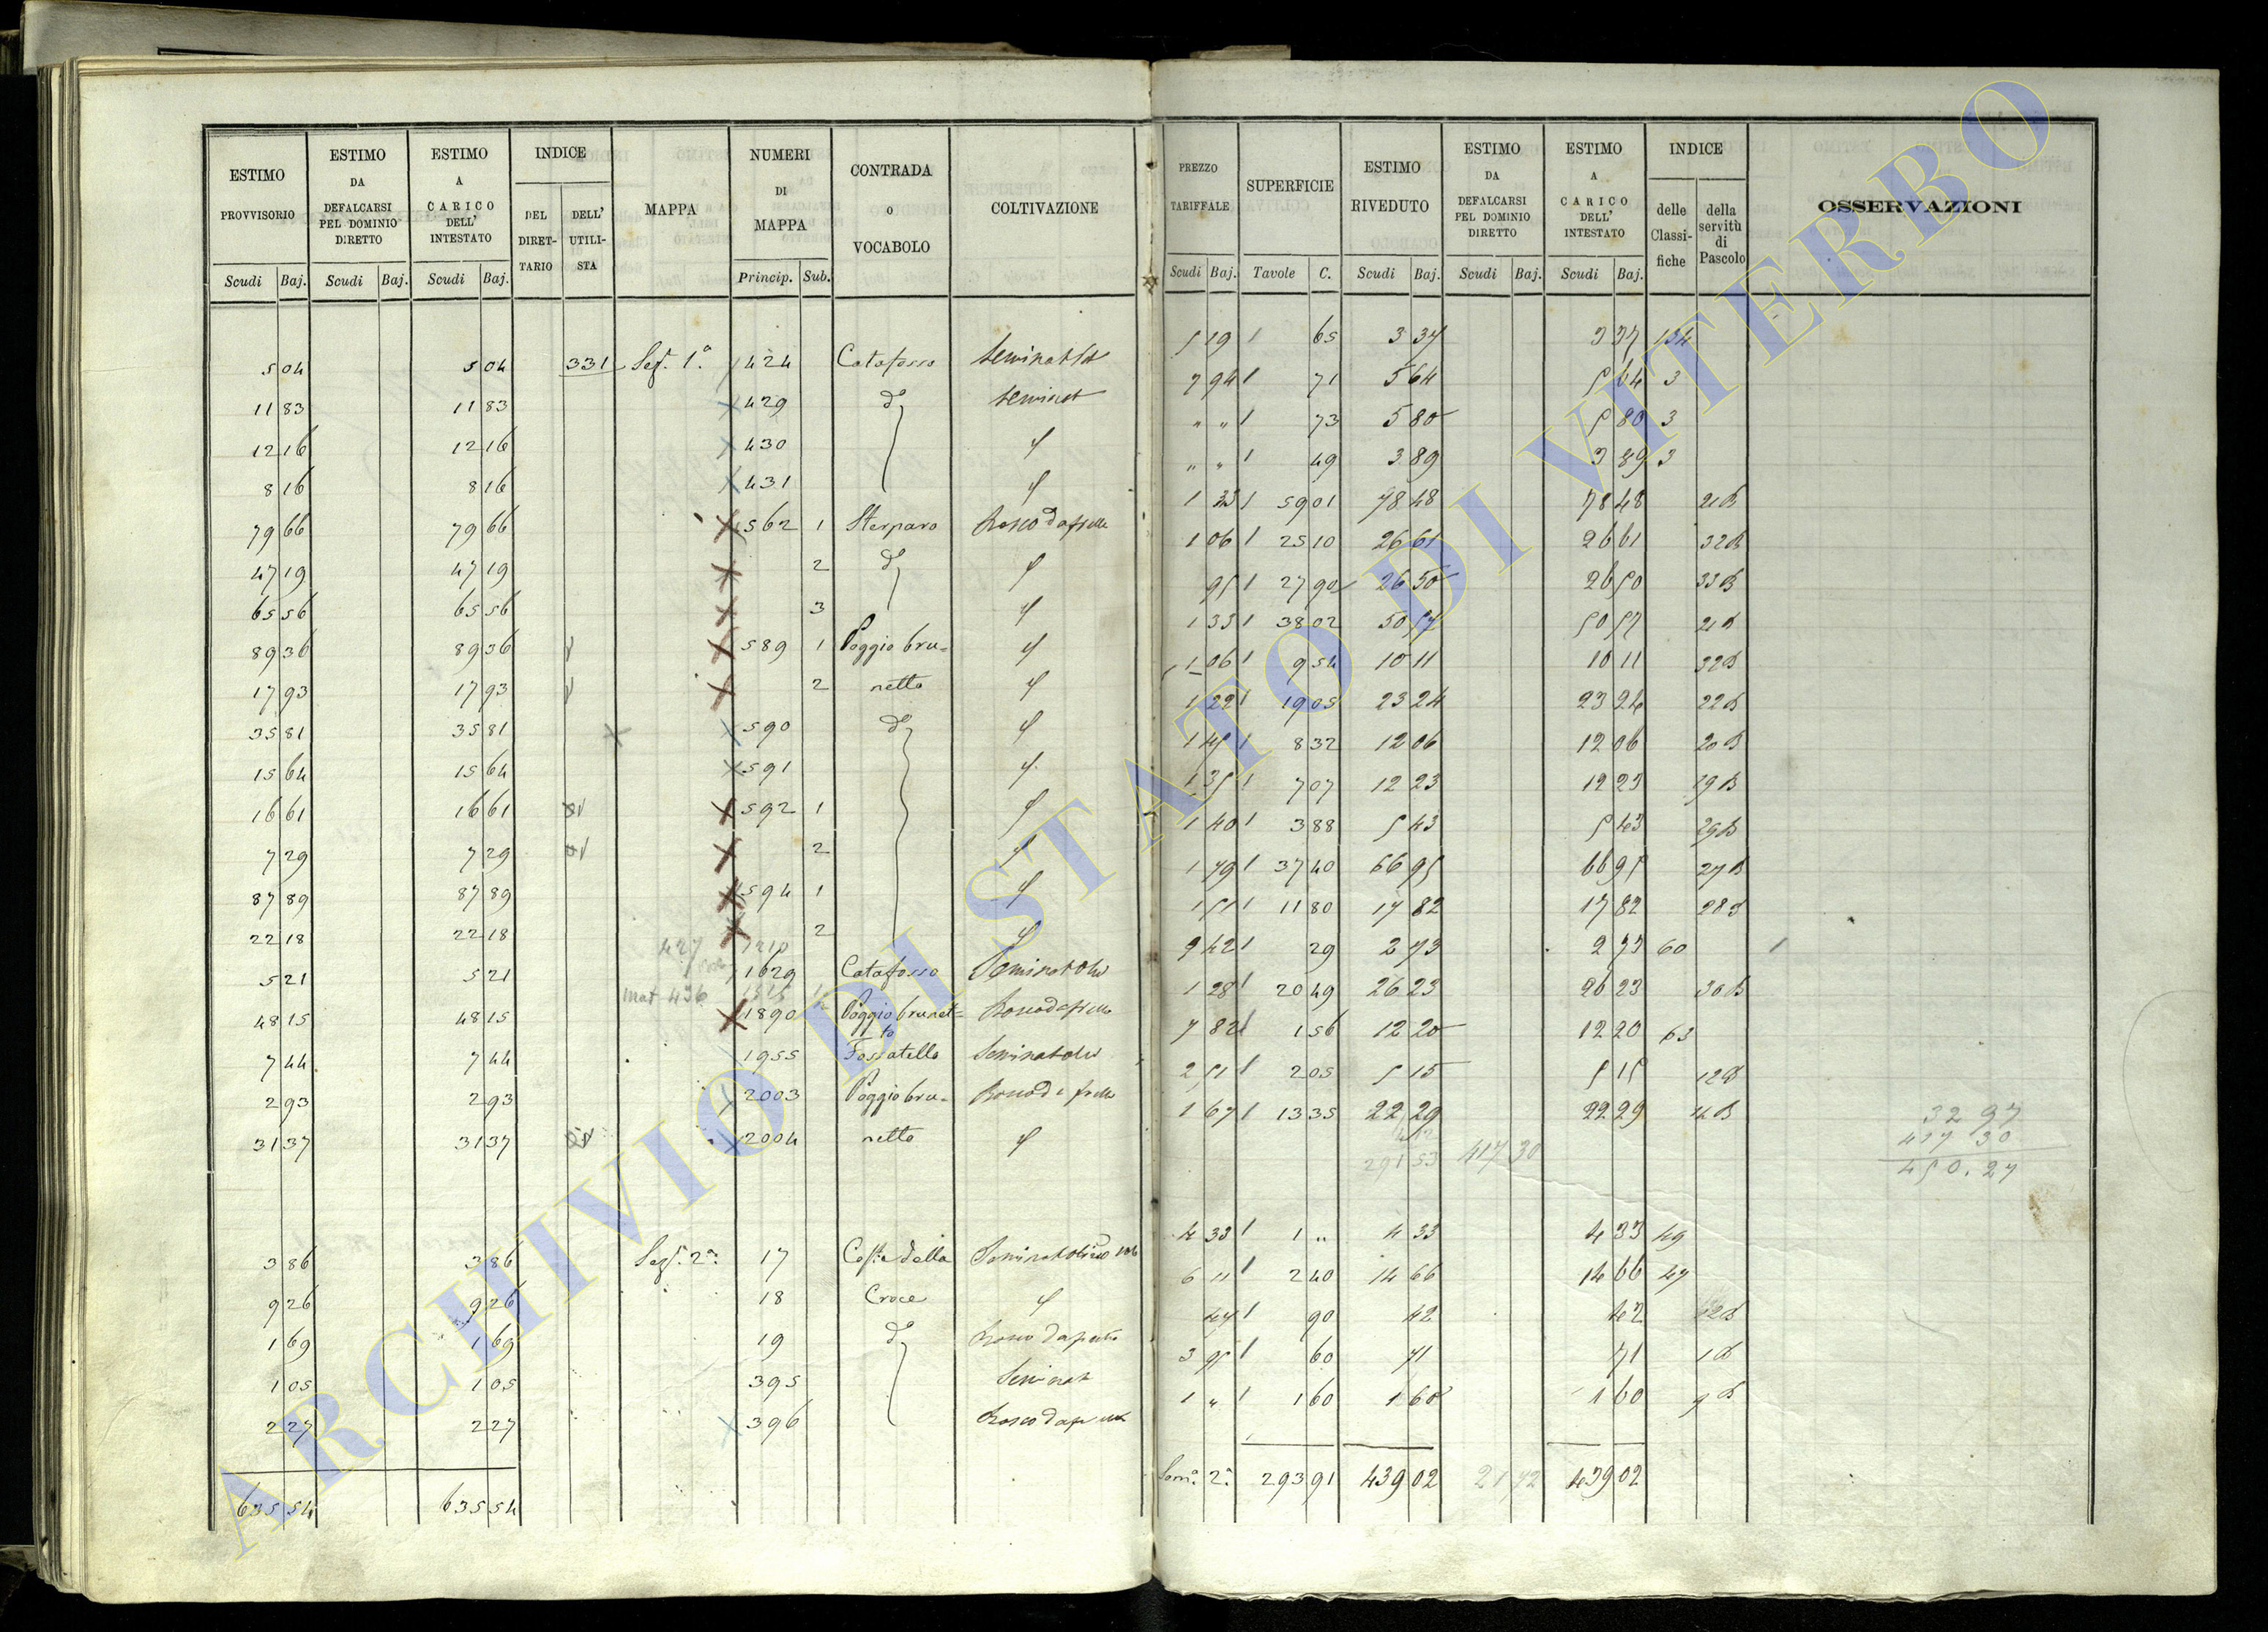 ESTIMO PROVVISORIO
ESTIMO DA DEFALCARSI PEL DOMINIO DIRETTO
ESTIMO A CARICO DELL' INTESTATO
INDICE
DEL DIRET-TARIO
DELL' UTILI-STA
MAPPA
NUMERI DI MAPPA
CONTRADA o VOCABOLO
COLTIVAZIONE
Scudi Baj. Scudi Baj. Scudi Baj. Princip. Sub.
5 04 5 04 331 Sez. 1.a 424 Catafosso
11 83 11 83 429 do Seminat
12 16 12 16 430
8 16 8 16 431
79 66 79 66 562 1 Sterparo
47 19 47 19 2 do
65 56 65 56 3
89 36 89 36 589 1 Poggio bru=
17 93 17 93 2 netto
35 81 35 81 590 do
15 64 15 64 591
16 61 16 61 592 1
7 29 7 29 2
87 89 87 89 594 1
22 18 22 18 2
427
5 21 5 21 1629 Catafosso
mat 436
48 15 48 15 1890 Poggio brunet=
to
7 44 7 44 1955 Fossatello
2 93 2 93 2003 Poggio bru=
31 37 31 37 2004 netto
3 86 3 86 Sez. 2.a 17 Costa della
9 26 9 26 18 Croce
1 69 1 69 19 do
1 05 1 05 395 Seminat
2 27 2 27 396
635 54 635 54
PREZZO TARIFFALE
SUPERFICIE
ESTIMO RIVEDUTO
ESTIMO DA DEFALCARSI PEL DOMINIO DIRETTO
ESTIMO A CARICO DELL' INTESTATO
INDICE
delle Classi-fiche
della servitù di Pascolo
OSSERVAZIONI
Scudi Baj. Tavole C. Scudi Baj. Scudi Baj. Scudi Baj.
5 19 65 3 37 3 37 134
7 94 71 5 64 5 64 3
" " 73 5 80 5 80 3
" " 49 3 89 3 89 3
1 33 59 01 78 48 78 48
1 06 25 10 26 61 26 61 32B
95 27 90 26 50 26 50 33B
1 33 38 02 50 57 50 57
1 06 9 54 10 11 10 11 32B
1 22 19 05 23 24 23 24 22B
1 45 8 32 12 06 12 06 20B
7 07 12 23 12 23 19B
1 40 3 88 5 43 5 43 29B
1 79 37 40 66 95 66 95 27B
1 51 11 80 17 82 17 82 28B
9 42 29 2 73 2 73 60
1 28 20 49 26 23 26 23 30B
7 82 1 56 12 20 12 20 63
2 51 2 05 5 15 5 15 12B
1 67 13 35 22 29 22 29
32 97
417 30
450.27
291 53 417 30
4 33 1 " 4 33 4 33 49
6 11 2 40 14 66 14 66 47
47 90 42 42 12B
3 95 60 71 71 1B
1 " 1 60 1 60 1 60 9B
Som.a 2.a 293 91 439 02 21 72 439 02
ARCHIVIO DI STATO DI VITERBO